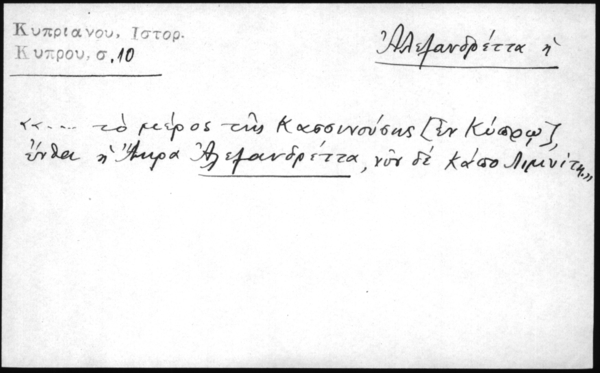 Κυπριανου, Ιστορ.
Κυπρου, σ.10
Ἀλεξανδρέττα ἡ
«.... τὸ μέρος τῆς Κασσινούσης [ἐν Κύπρῳ],
ἔνθα ἡ Ἄκρα Ἀλεξανδρέττα, νῦν δὲ Κάπο Λιμνίτη.»